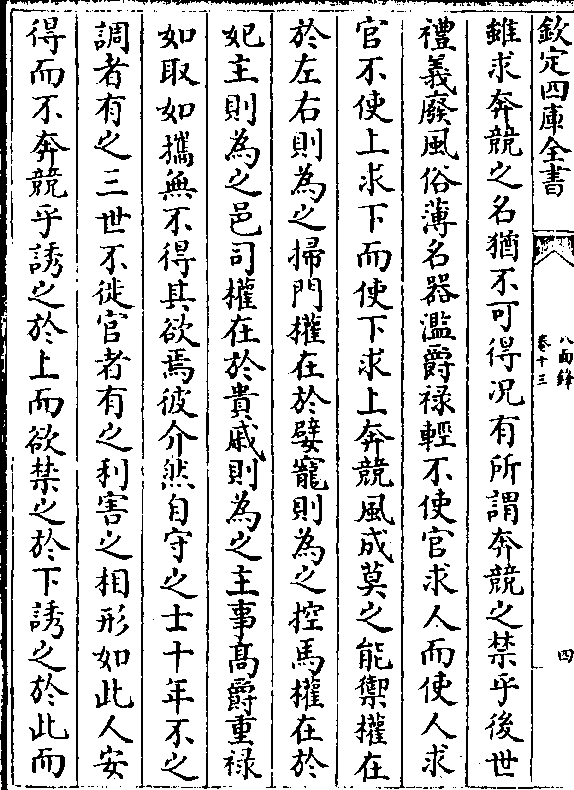 欽定四庫全書
八面鋒
卷十三
四
雖求奔競之名猶不可得况有所謂奔競之禁乎後世
禮義廢風俗薄名器濫爵禄輕不使官求人而使人求
官不使上求下而使下求上奔競風成莫之能禦權在
於左右則為之掃門權在於嬖寵則為之控馬權在於
妃主則為之邑司權在於貴戚則為之主事髙爵重禄
如取如攜無不得其欲焉彼介然自守之士十年不之
調者有之三世不徙官者有之利害之相形如此人安
得而不奔競乎誘之於上而欲禁之於下誘之於此而